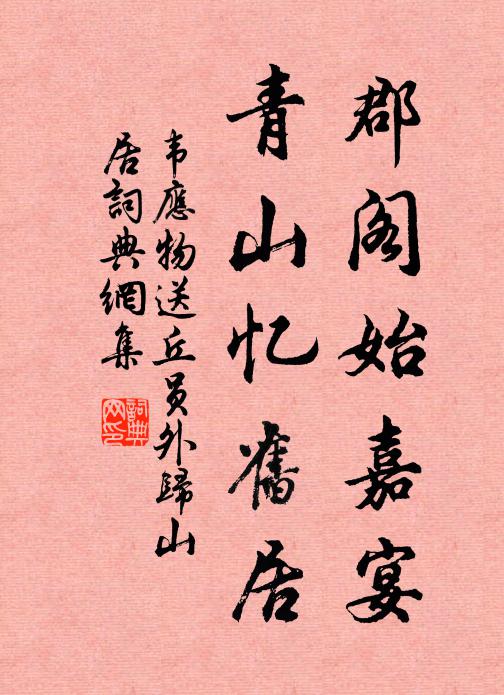 郡阁始嘉宴
青山忆舊居
韦應物送丘員外歸山
居詞典網集
詞典网印